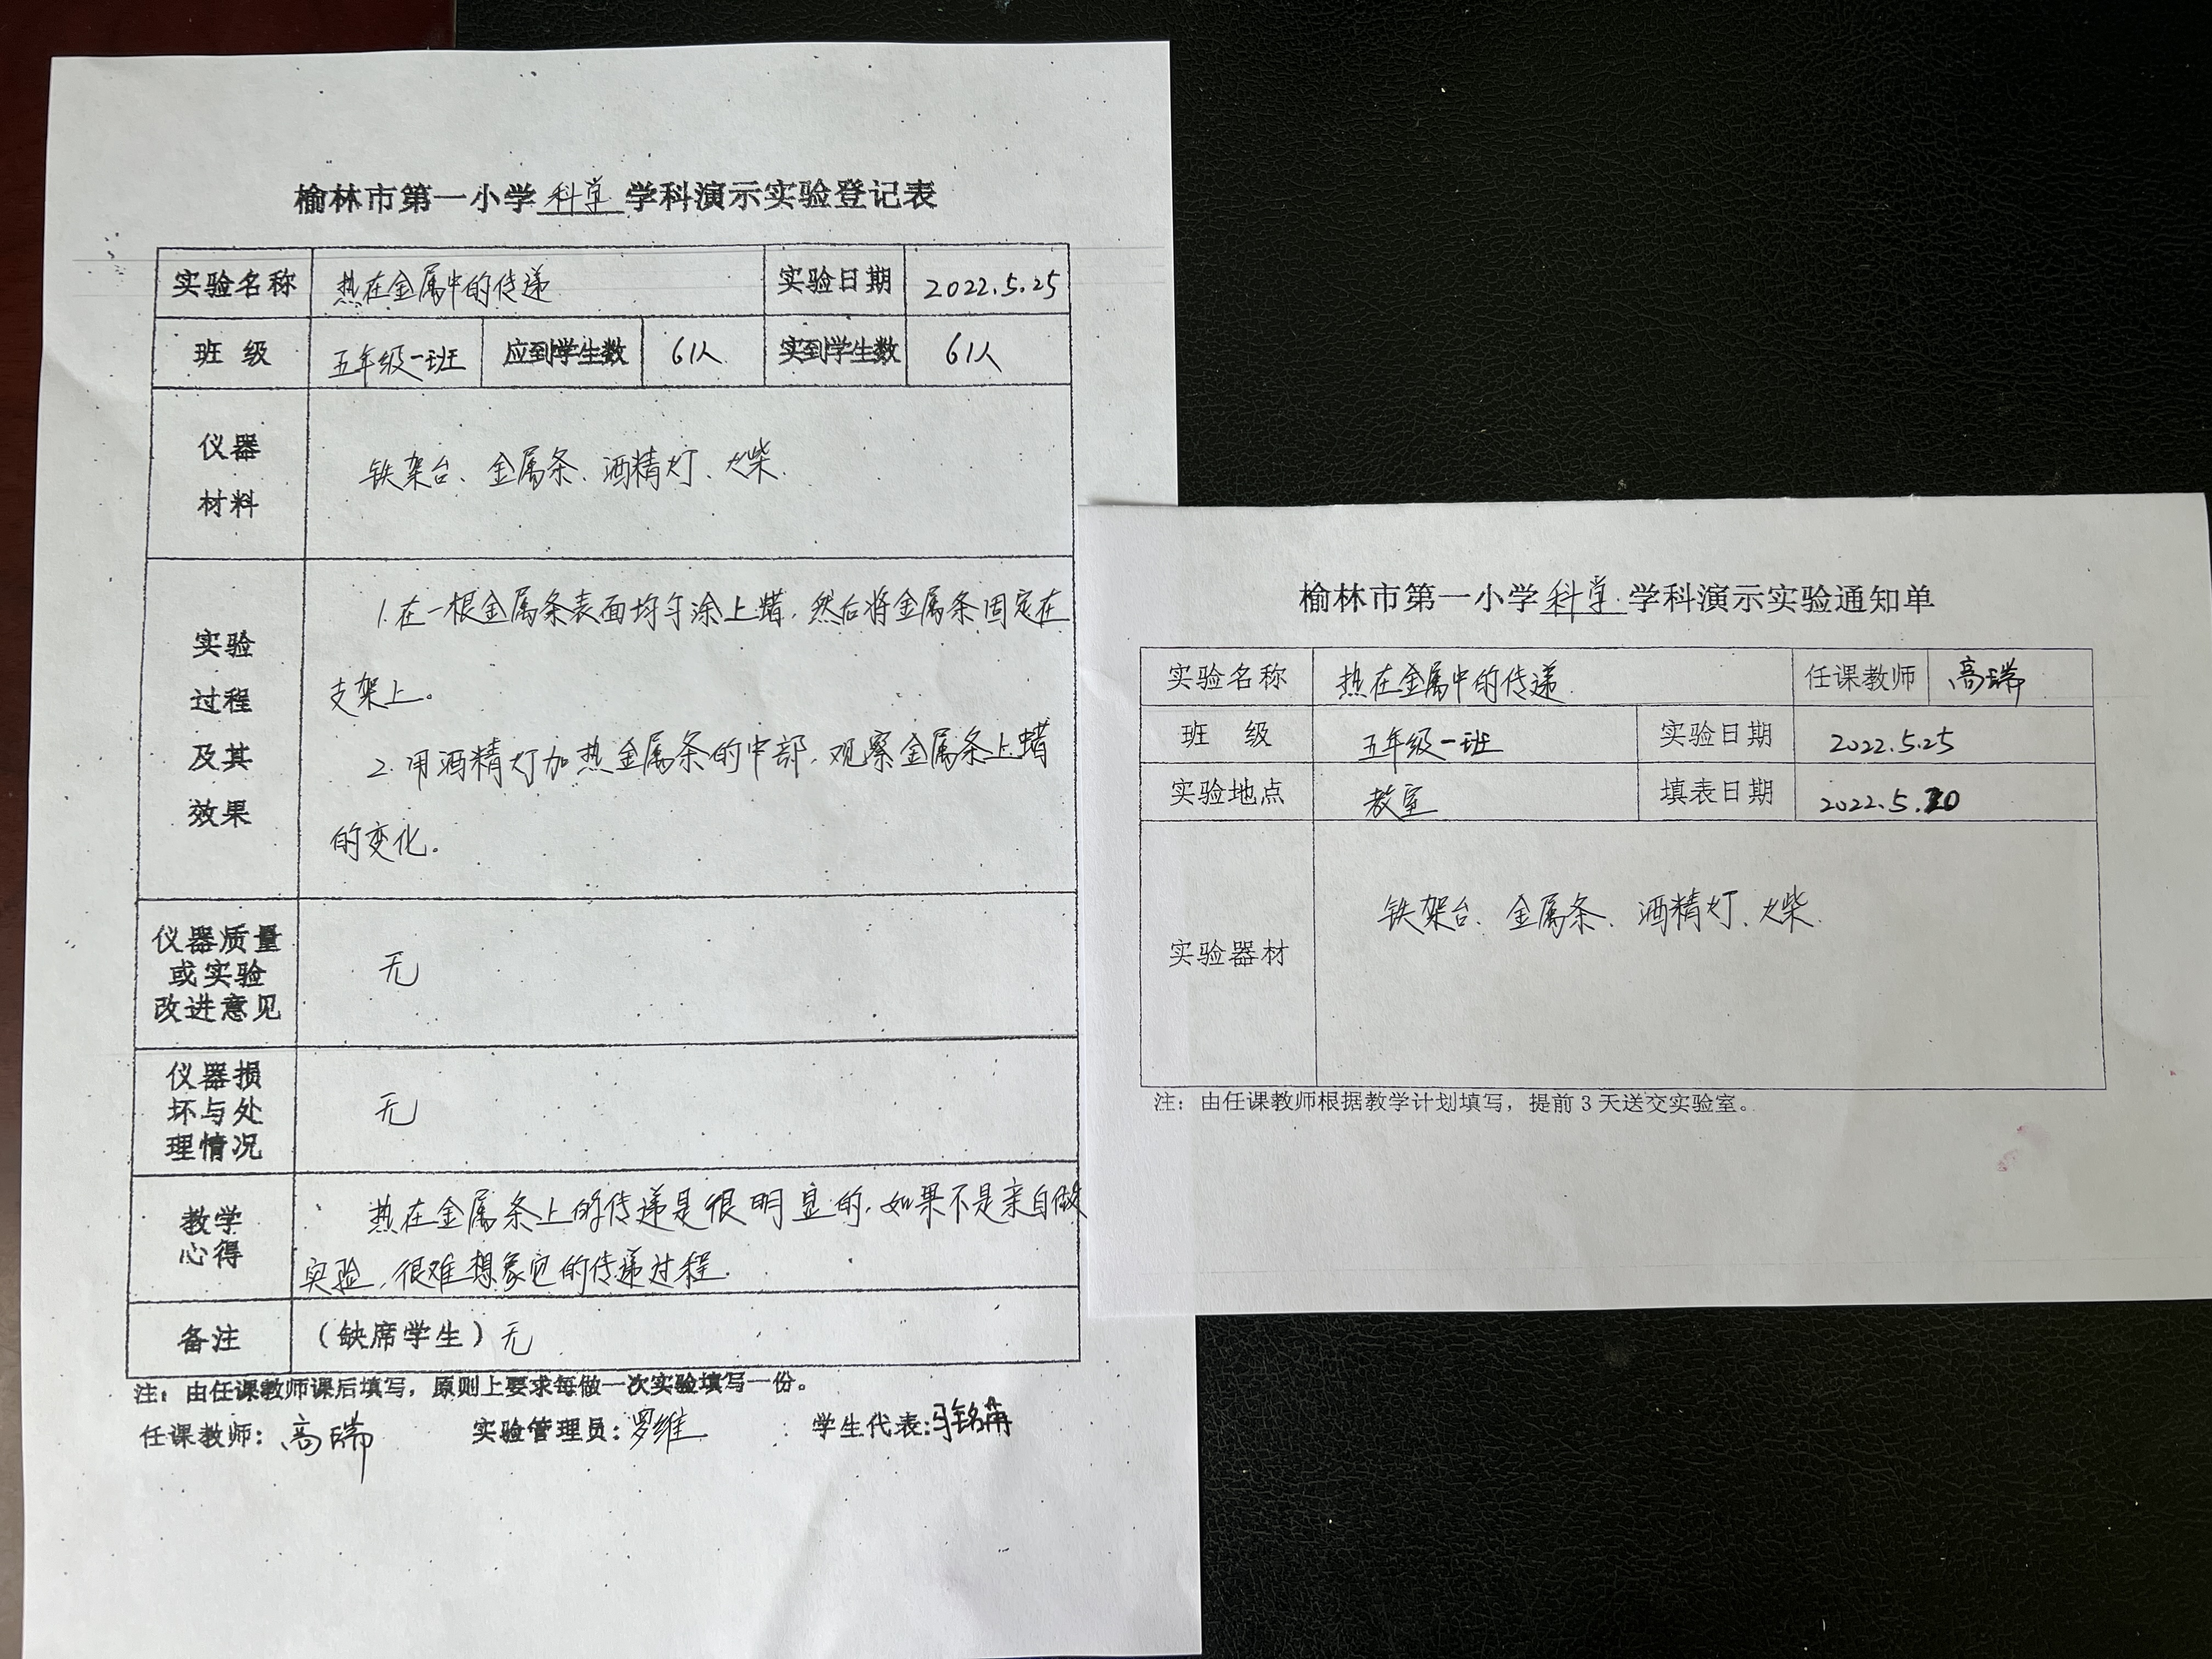 榆林市第一小学 科学 学科演示实验登记表
实验名称 热在金属中的传递 实验日期 2022.5.25
班 级 五年级一班 应到学生数 61人 实到学生数 61人
仪器
材料
铁架台、金属条、酒精灯、火柴.
实验
过程
及其
效果
1.在一根金属条表面均匀涂上蜡,然后将金属条固定在
支架上。
2.用酒精灯加热金属条的中部,观察金属条上蜡
的变化。
仪器质量
或实验
改进意见
无
仪器损
坏与处
理情况
无
教学
心得
热在金属条上的传递是很明显的,如果不是亲自做
实验,很难想象它的传递过程.
备注 (缺席学生)无
注:由任课教师课后填写,原则上要求每做一次实验填写一份。
任课教师:高瑞 实验管理员:罗维 学生代表:
榆林市第一小学 科学 学科演示实验通知单
实验名称 热在金属中的传递 任课教师 高瑞
班 级 五年级一班 实验日期 2022.5.25
实验地点 教室 填表日期 2022.5.20
实验器材
铁架台、金属条、酒精灯、火柴.
注:由任课教师根据教学计划填写,提前3天送交实验室。